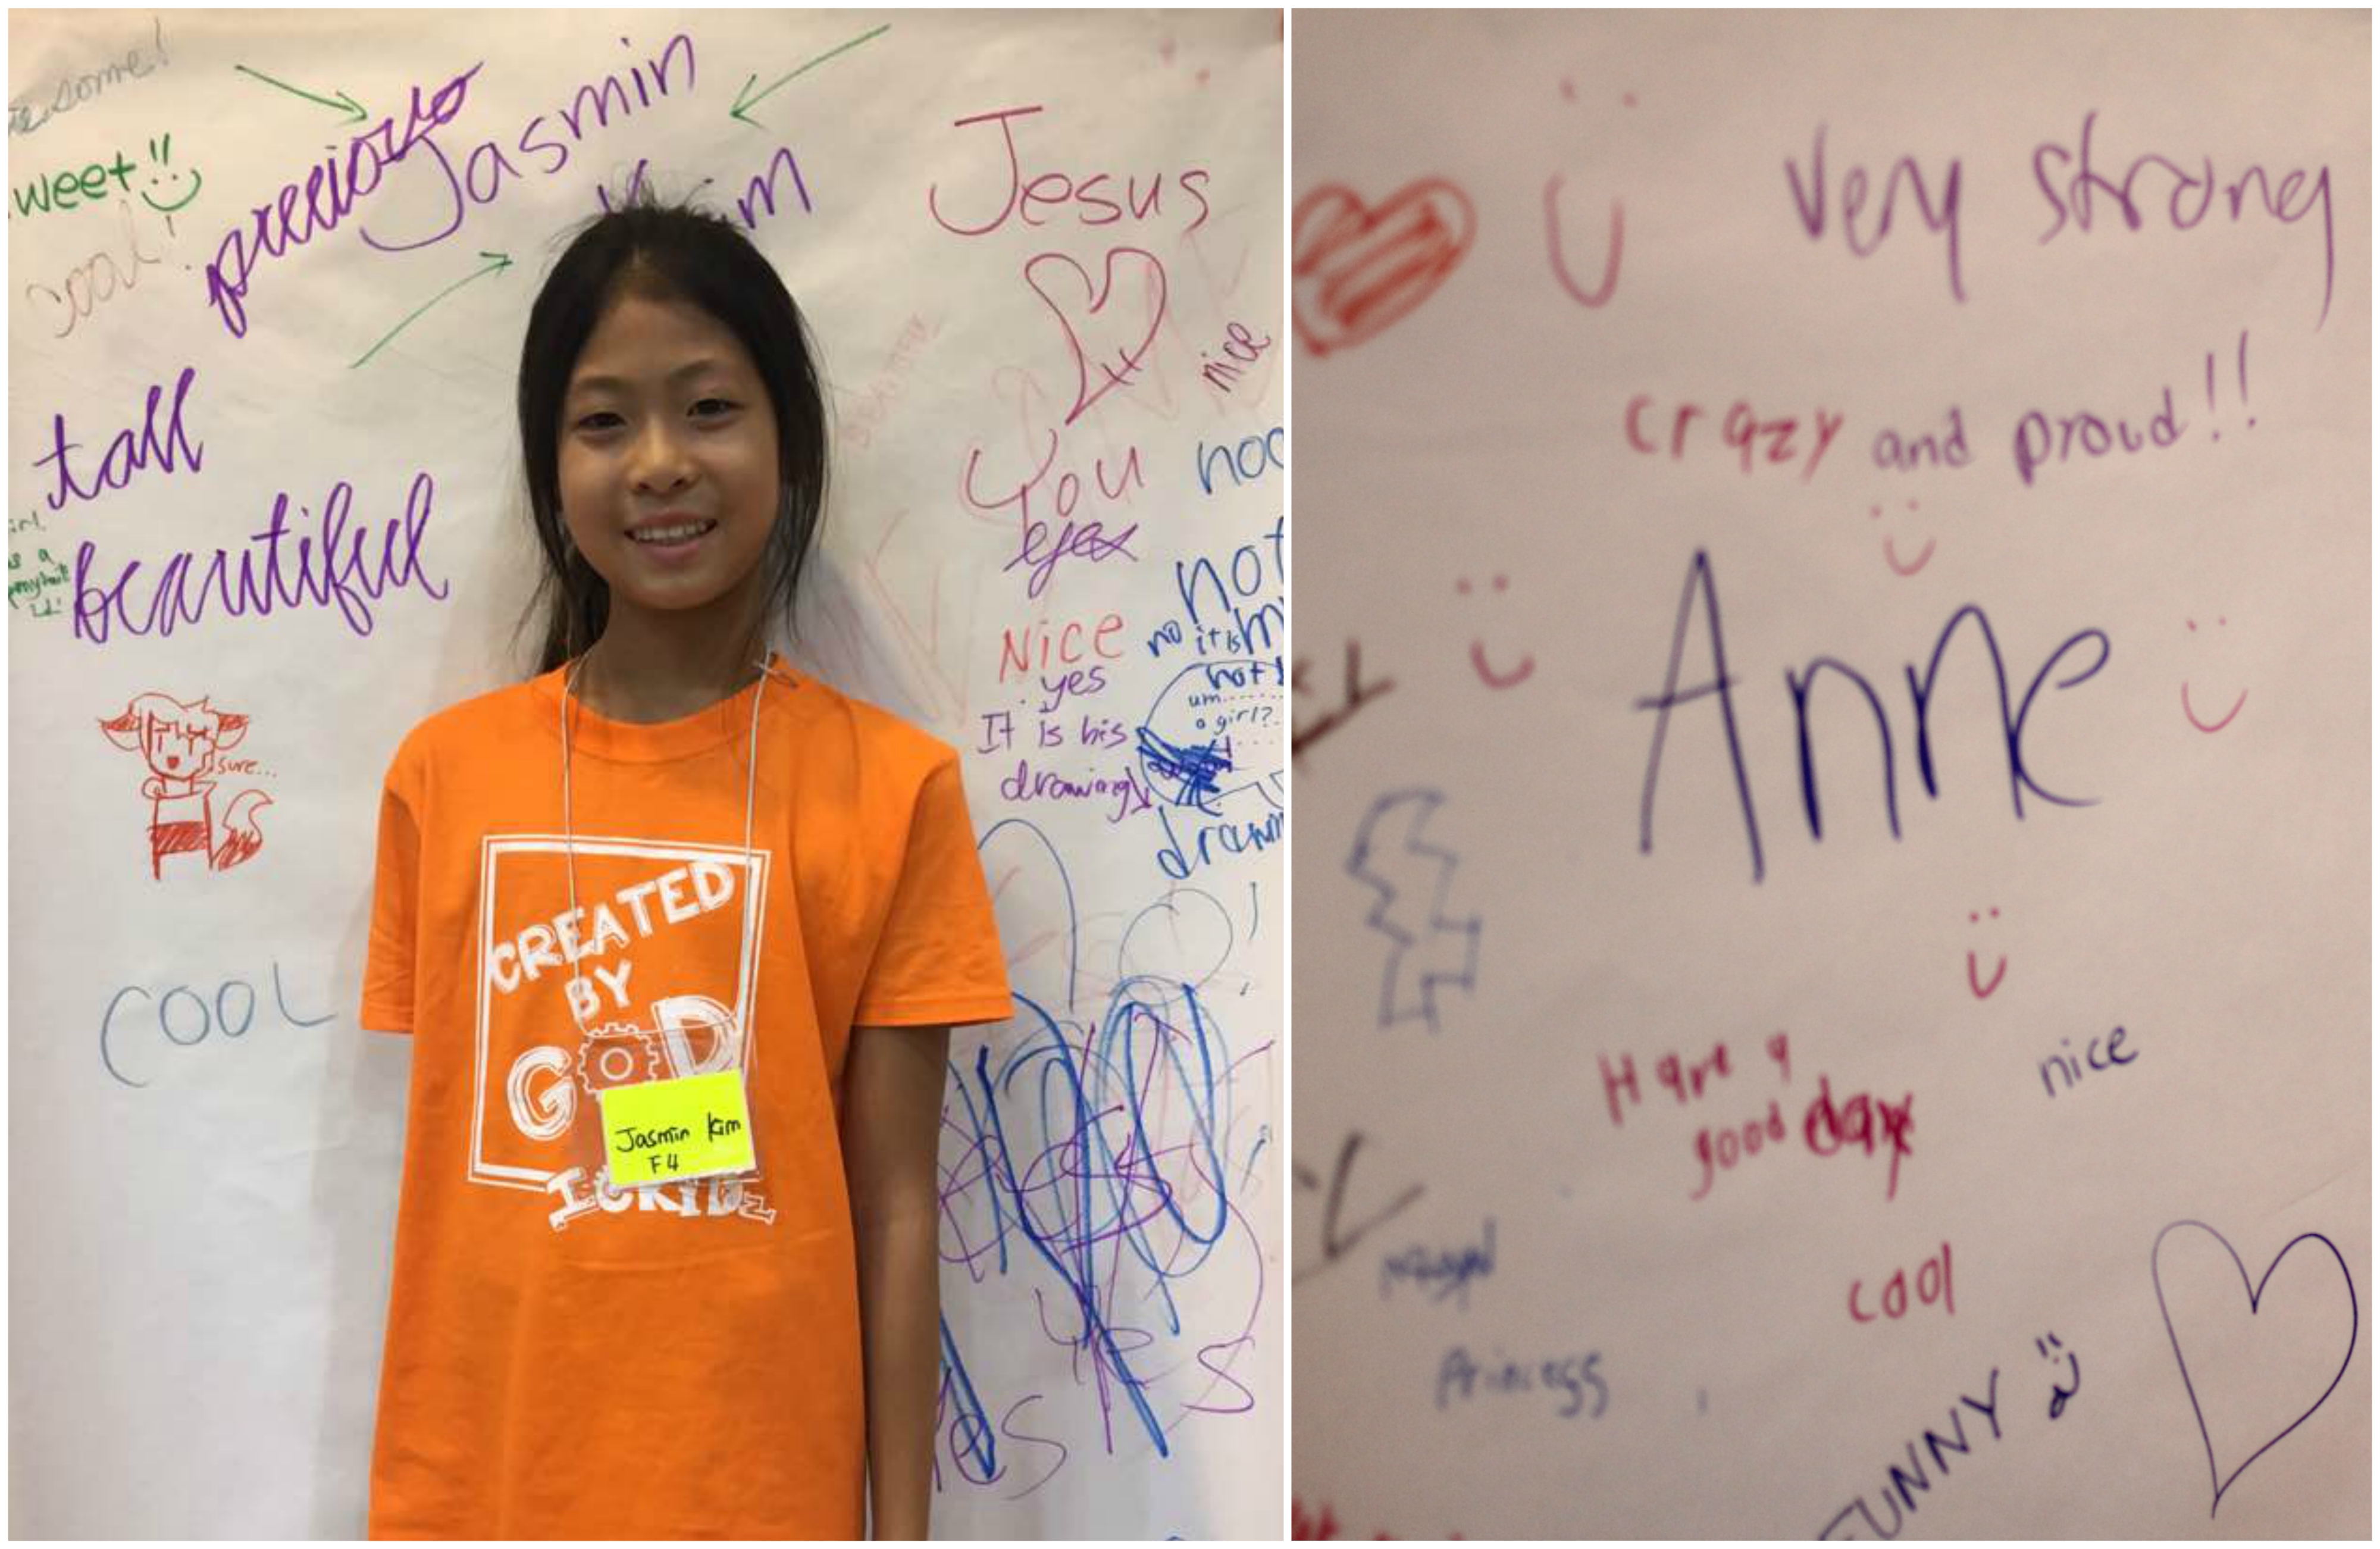 Jasmin
precious
Jesus
weet!!
cool!
nice
tall
You
eyes
beautiful
NiCE
no it is
not
yes
um......
a girl?
It is his
drawing
sure...
COOL
CREATED
BY
GOD
Jasmin Kim
F4
yes
very strong
crazy and proud!!
Anne
Have a
good day
nice
cool
Princess
FUNNY